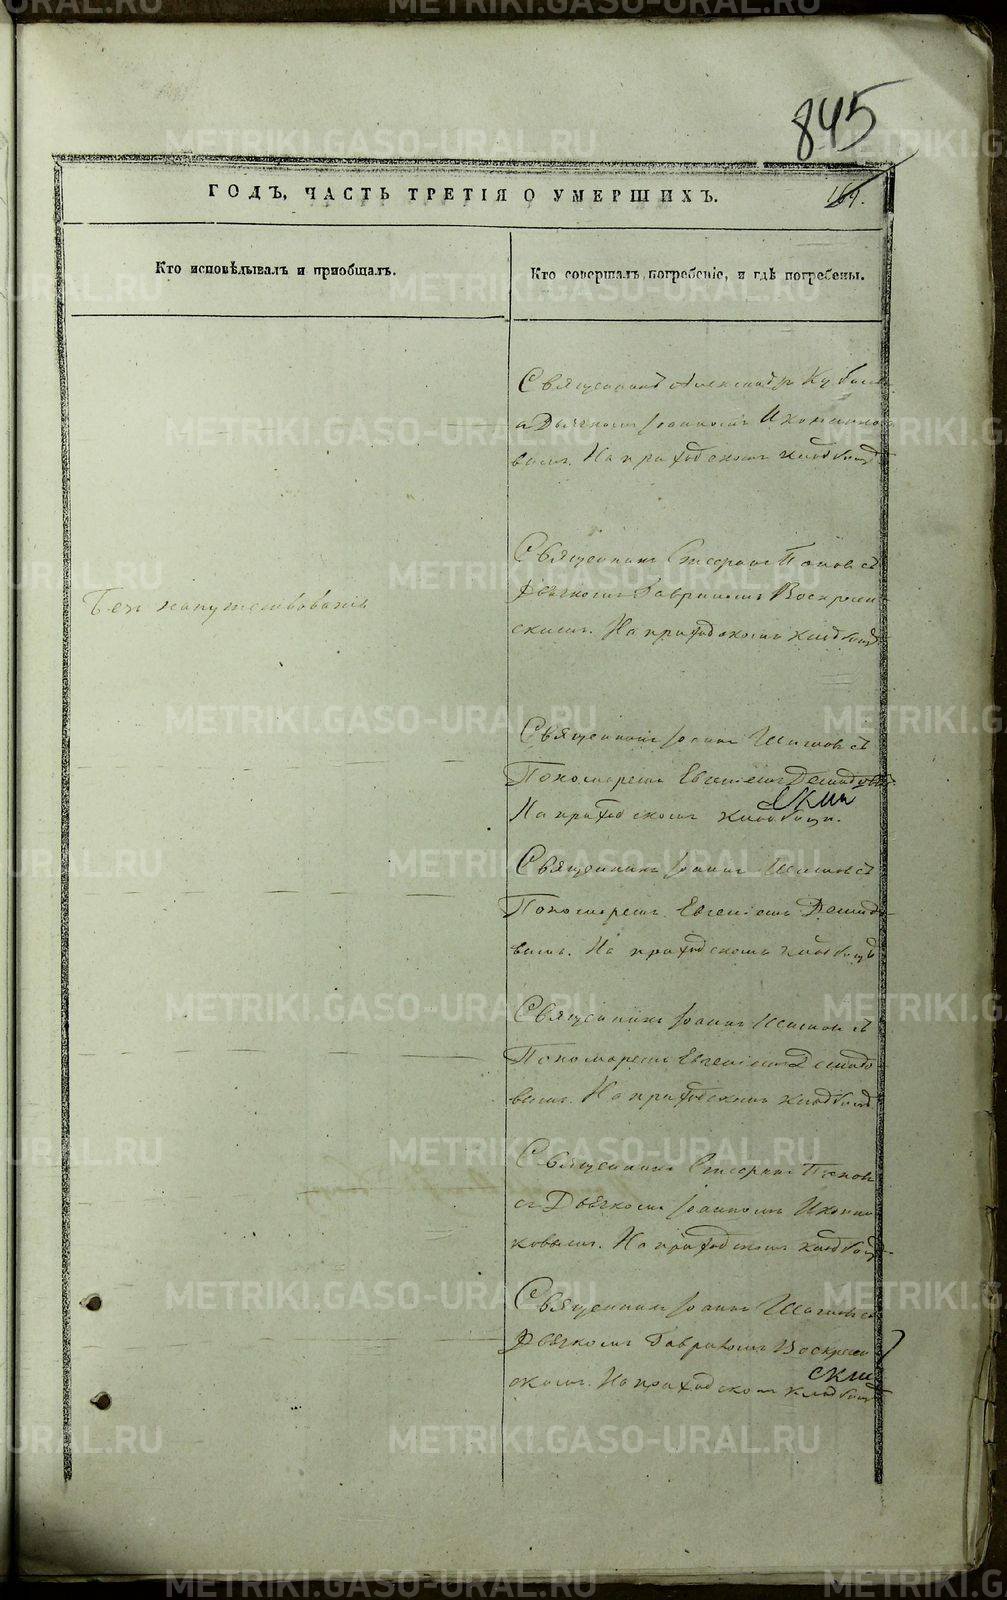 845
ГОДЪ, ЧАСТЬ ТРЕТІЯ О УМЕРШИХЪ.
169.
Кто исповѣдывалъ и пріобщалъ.
Кто совершалъ погребеніе, и гдѣ погребены.
Священникъ Александръ
съ Дьячкомъ Іоанномъ Иконнико-
вымъ. На приходскомъ кладбищѣ
Священникъ Стефанъ Поповъ съ
Безъ напутствованія
Дьячкомъ Гавриломъ Воскресен-
скимъ. На приходскомъ кладбищѣ
Священникъ Іоаннъ Шишовъ съ
Пономаремъ Евгеніемъ
На приходскомъ кладбищѣ.
Священникъ Іоаннъ Шишовъ съ
Пономаремъ Евгеніемъ Демидо-
вымъ. На приходскомъ кладбищѣ
Священникъ Іоаннъ Шишовъ съ
Пономаремъ Евгеніемъ Демидо-
вымъ. На приходскомъ кладбищѣ
Священникъ Стефанъ Поповъ
съ Дьячкомъ Іоанномъ Иконни-
ковымъ. На приходскомъ кладбищѣ
Священникъ Іоаннъ Шишовъ съ
Дьячкомъ Гавриломъ Воскресен-
скимъ
скимъ. На приходскомъ кладбищѣ
METRIKI.GASO-URAL.RU